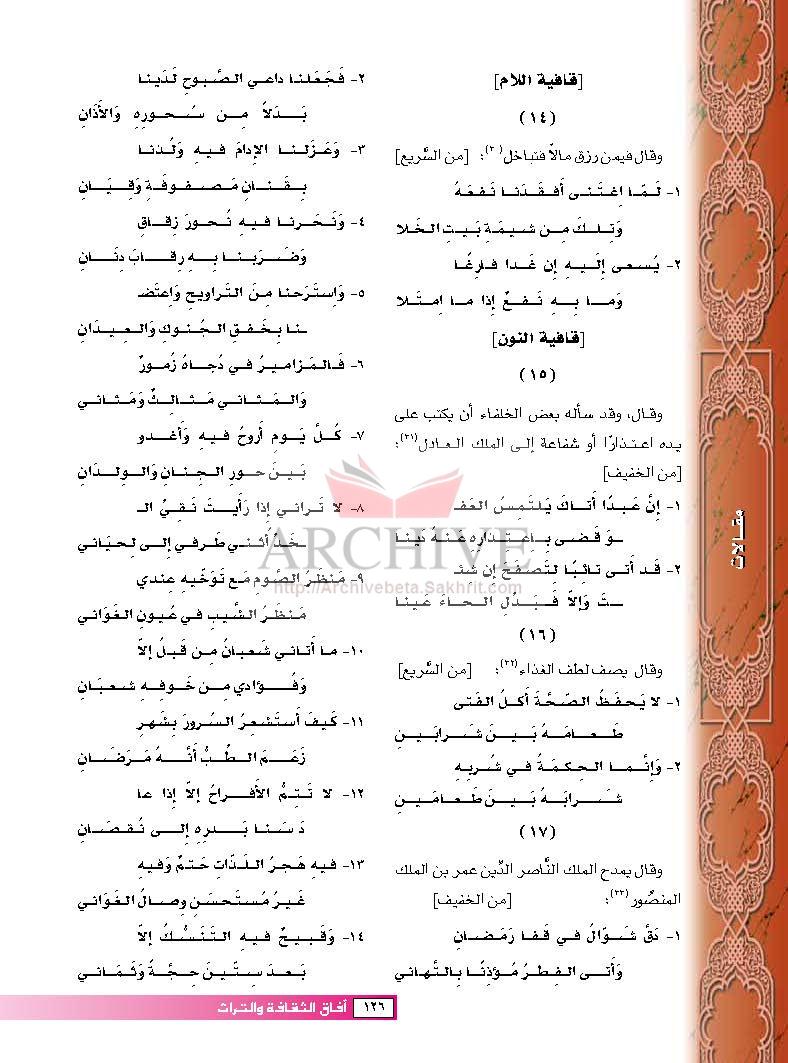 [قافية اللام]
(١٤)
وقال فيمن رزق مالاً فتباخل(٣٠): [من السَّريع]
١- لَـمَّـا اغِـتَـنـى أَفـقَـدَنـا نَـفـعَـهُ
وَتِـلـكَ مِـن شـيـمَـةِ بَـيـتِ الـخَـلا
٢- يُـسـعـى إِلَـيـهِ إِن غَـدا فـارِغًـا
وَمـا بِـهِ نَـفـعٌ إِذا مـا امـتَـلا
[قافية النون]
(١٥)
وقال، وقد سأله بعض الخلفاء أن يكتب على
يده اعتذارًا أو شفاعة إلى الملك العادل(٣١):
[من الخفيف]
١- إِنَّ عَبدًا أَتاكَ يَلتَمِسُ العَفـ
ـوَ قَضى بِـاِعتِذارِهِ عَنهُ دَينا
٢- قَد أَتى تائِبًا لِتَصفَحَ إِن شئـ
ـتَ وَإِلاّ فَبَدِّلِ الحاءَ عَينا
(١٦)
وقال يصف لطف الغذاء(٣٢): [من السَّريع]
١- لا يَحفَظُ الصِّحَّةَ أَكلُ الفَتى
طَعامَهُ بَينَ شَرابَينِ
٢- وَإِنَّما الحِكمَةُ في شُربِهِ
شَرابَهُ بَينَ طَعامَينِ
(١٧)
وقال يمدح الملك النَّاصر الدِّين عمر بن الملك
المنصُور(٣٣): [من الخفيف]
١- دَقَّ شَوّالُ في قَفا رَمَضانِ
وَأَتى الفِطرُ مُؤذِنًا بِالتَّهاني
٢- فَجَعَلنا داعي الصَّبوحِ لَدَينا
بَدَلاً مِن سُحورِهِ وَالأَذانِ
٣- وَعَزَلنا الإِدامَ فيهِ وَلُذنا
بِقَنانٍ مَصفوفَةٍ وَقِيانِ
٤- وَنَحَرنا فيهِ نُحورَ زِقاقٍ
وَضَرَبنا بِهِ رِقابَ دِنانِ
٥- وَاِستَرَحنا مِنَ التَّراويحِ وَاِعتَضـ
ـنا بِخَفقِ الجُنوكِ وَالعِيدانِ
٦- فَالمَزاميرُ في دُجاهُ زُمورٌ
وَالمَثاني مَثالِثٌ وَمَثاني
٧- كُلَّ يَومٍ أَروحُ فيهِ وَأَغدو
بَينَ حورِ الجِنانِ وَالوِلدانِ
٨- لا تَراني إِذا رَأَيتُ نَقِيَّ الـ
ـخَدِّ أُثني طَرفي إِلى لِحياني
٩- مَنظَرُ الصَّومِ مَع تَوَخّيهِ عِندي
مَنظَرُ الشَّيبِ في عُيونِ الغَواني
١٠- ما أَتاني شَعبانُ مِن قَبلُ إِلاّ
وَفُؤادي مِن خَوفِهِ شعبَانِ
١١- كَيفَ أَستَشعِرُ السُرورَ بِشَهرٍ
زَعَمَ الطُّبُّ أَنَّهُ مَرَضانِ
١٢- لا تَتِمُّ الأَفراحُ إِلاّ إِذا عا
دَ سَنا بَدرِهِ إِلى نُقصانِ
١٣- فيهِ هَجرُ اللَذّاتِ حَتمٌ وَفيهِ
غَيرُ مُستَحسَنٍ وِصالُ الغَواني
١٤- وَقَبيحٌ فيهِ التَنَسُّكُ إِلاّ
بَعدَ سِتّينَ حِجَّةً وَثَماني
مقالات
ARCHIVE
http://Archivebeta.Sakhrit.com
١٢٦ آفاق الثقافة والتراث